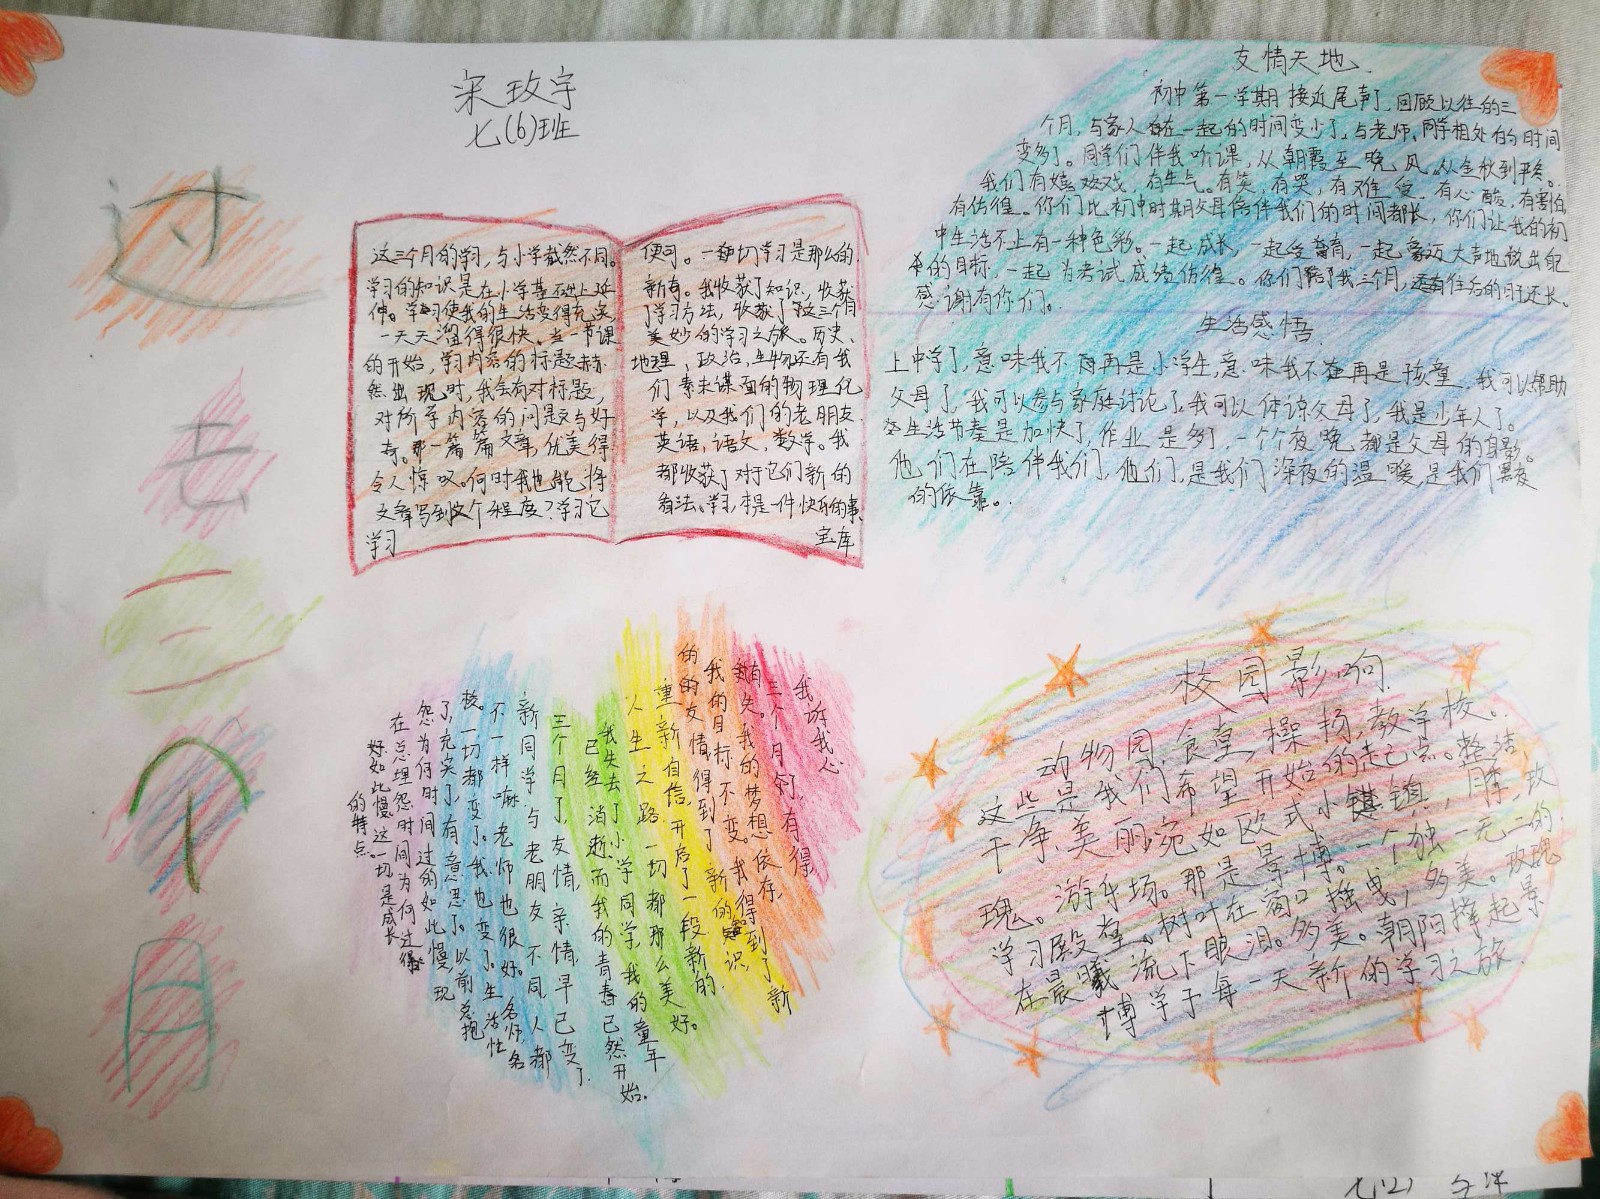 宋玫宇
七(6)班
过
去
三
个
月
这三个月的学习,与小学截然不同。
学习的知识是在小学基础上延
伸。学习使我的生活变得充实,
一天天溜得很快。当一节课
的开始,学习内容的标题赫
然出现时,我会有对标题,
对所学内容的问题与好
奇。那一篇篇文章,优美得
令人惊叹。何时我也能将
文章写到这个程度?学习它
便可。一切学习是那么的
新奇。我收获了知识,收获
了学习方法,收获了这三个月
美妙的学习之旅。历史、
地理、政治,生物还有我
们素未谋面的物理化
学,以及我们的老朋友
英语,语文,数学。我
都收获了对于它们新的
看法。学习,本是一件快乐的事。
学习
宝库
友情天地
初中第一学期接近尾声了,回顾以往的三
个月,与家人在一起的时间变少了,与老师、同学相处的时间
变多了。同学们伴我听课,从朝霞至晚风,从金秋到寒冬。
我们有嬉戏,有生气。有笑,有哭,有难受,有心酸,有害怕,
有彷徨。你们比初中时期父母陪伴我们的时间都长,你们让我的初
中生活不止有一种色彩。一起成长,一起受育,一起豪迈大声地说出
的目标,一起为考试成绩彷徨。你们陪了我三个月,还有往后的日子还长。
感谢有你们。
生活感悟
上中学了,意味我不再是小学生,意味我不再是孩童,我可以帮助
父母了,我可以参与家庭讨论了,我可以体谅父母了,我是少年人了。
生活节奏是加快了,作业是多了,一个个夜晚都是父母的身影。
他们在陪伴我们,他们,是我们深夜的温暖,是我们黑夜
的依靠。
我诉我心
三个月匆匆,有得
有失。我的梦想依存,
我的目标不变。我得到了新
的友情,得到了新的知识,
重新自信,开启了一段新的
人生之路,一切都那么美好。
我失去了小学同学,我的童年
已经消逝,而我的青春已然开始。
三个月了,友情,亲情,早已变了。
新同学与老朋友不同,人都
不一样嘛,老师也很好。名师名
校。一切都变了。我也变了。生活忙
了,充实了,有意思了。以前总抱
怨为何时间过的如此慢,现
在总埋怨时间为何过得
好如此慢,这一切是成长
的特点。
校园影响
动物园,食堂,操场,教学楼。
这些是我们希望开始的起点。整洁,
干净,美丽宛如欧式小镇,月季,玫
瑰。游乐场。那是景博。一个独一无二的
学习殿堂。树叶在窗口摇曳,多美。玫瑰
在晨曦流下眼泪。多美。朝阳撑起景
博学子每一天新的学习之旅。